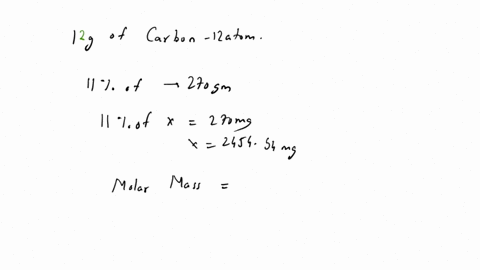 12g of Carbon -12atom.
11%. of → 270gm
11%.of x = 270mg
x = 2454.54 mg
Molar Mass =